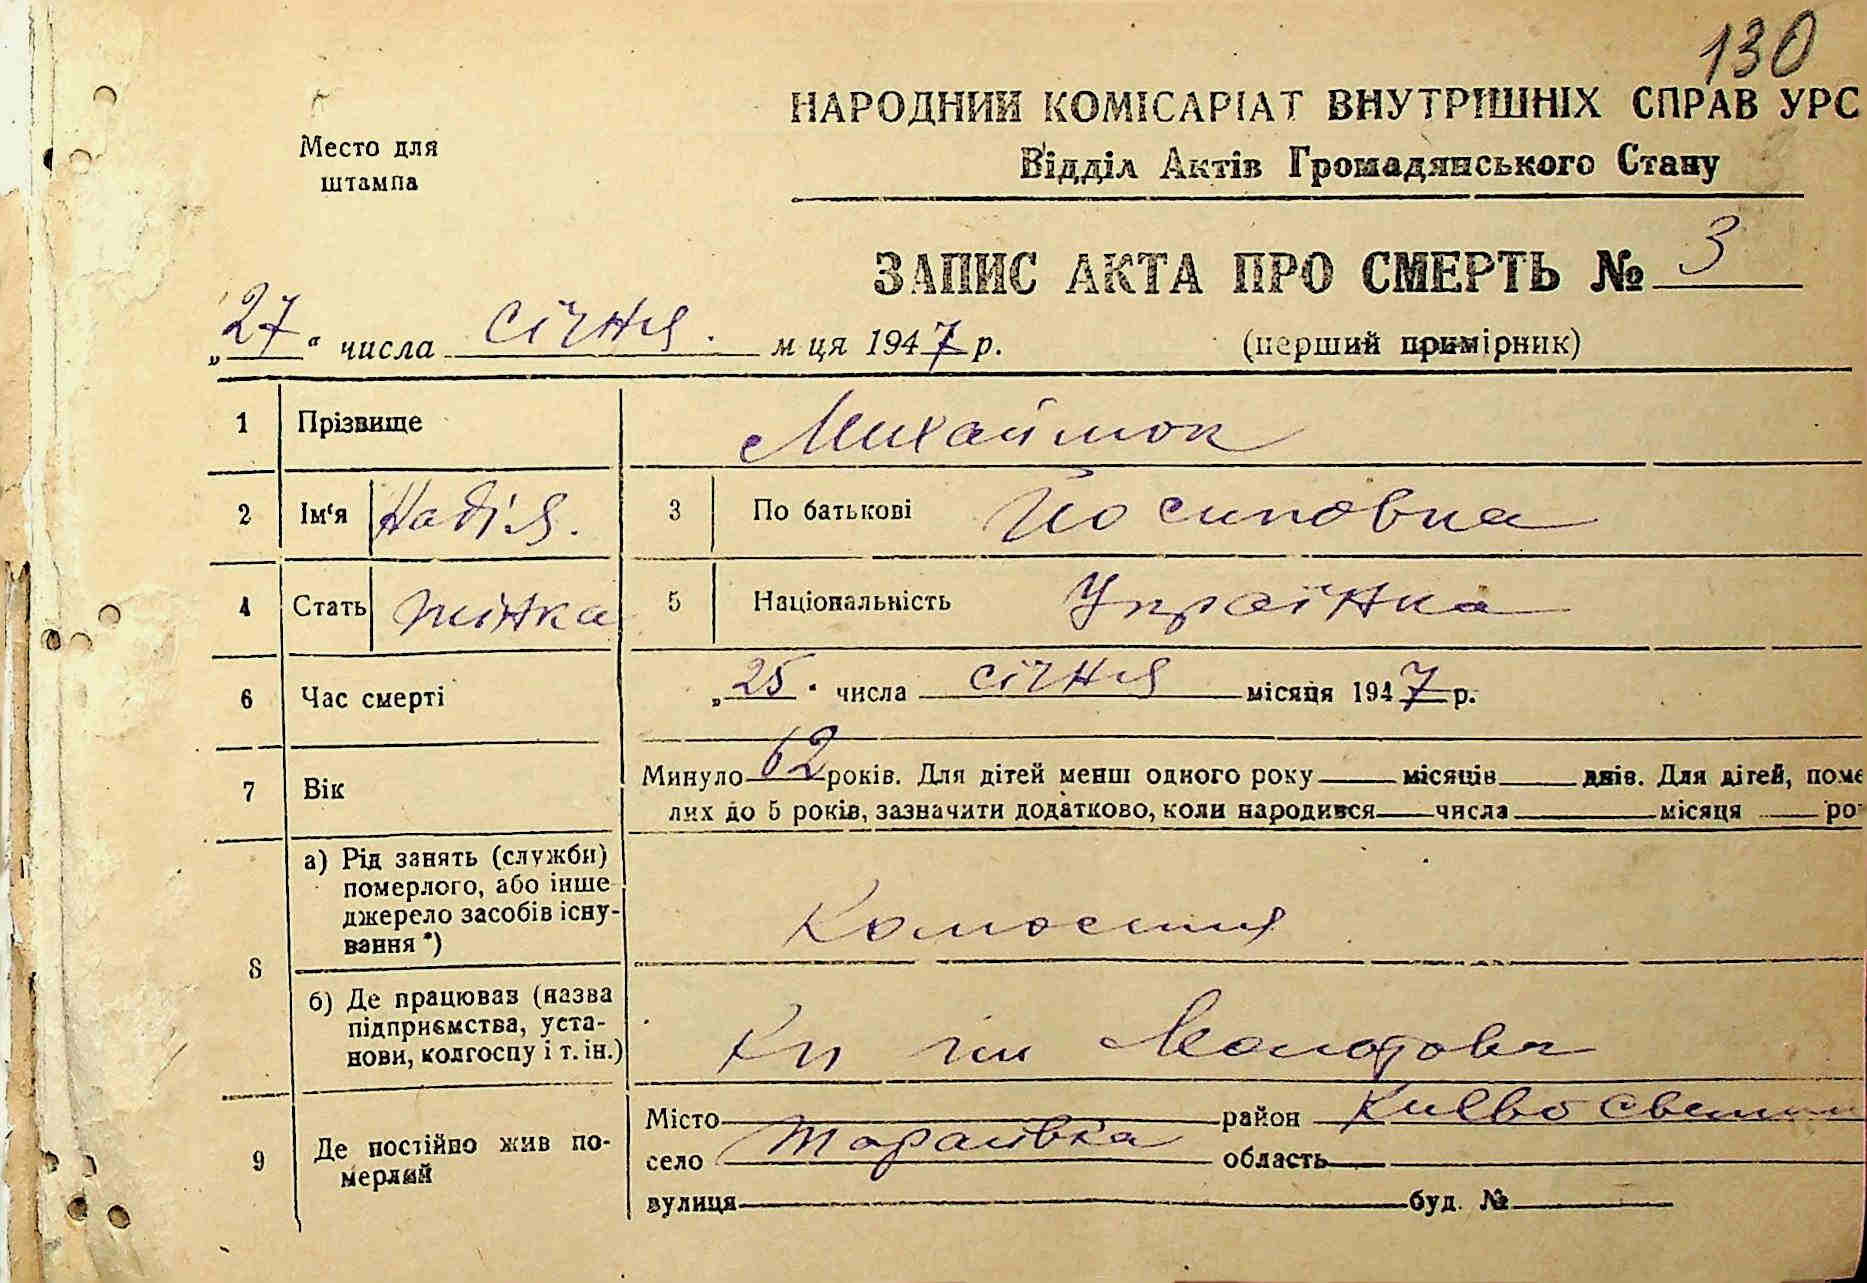 130
НАРОДНИЙ КОМІСАРІАТ ВНУТРІШНІХ СПРАВ УРС
Відділ Актів Громадянського Стану
Место для
штампа
ЗАПИС АКТА ПРО СМЕРТЬ № 3
„27“ числа січня м ця 1947 р. (перший примірник)
1 Прізвище Михаймок
2 Ім'я Надія. 3 По батькові Йосиповна
4 Стать жінка 5 Національність Українка
6 Час смерті „25" числа січня місяця 1947 р.
7 Вік Минуло 62 років. Для дітей менш одного року місяців днів. Для дітей, поме
лих до 5 років, зазначити додатково, коли народився числа місяця ро
8 а) Рід занять (служби)
померлого, або інше
джерело засобів існу-
вання *)
б) Де працював (назва
підприємства, уста-
нови, колгоспу і т. ін.)
Кп ім
9 Де постійно жив по-
мерлий
Місто район Києво
село область
вулиця буд. №